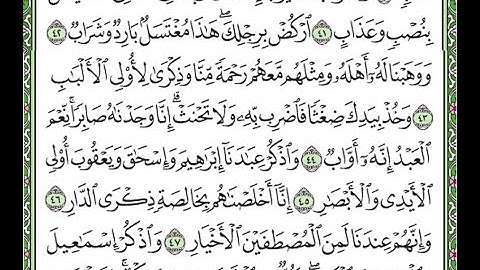 بِنُصْبٍ وَعَذَابٍ ٤١ ٱرْكُضْ بِرِجْلِكَ ۖ هَٰذَا مُغْتَسَلٌۢ بَارِدٌ وَشَرَابٌ ٤٢
وَوَهَبْنَا لَهُۥٓ أَهْلَهُۥ وَمِثْلَهُم مَّعَهُمْ رَحْمَةً مِّنَّا وَذِكْرَىٰ لِأُو۟لِى ٱلْأَلْبَٰبِ
٤٣ وَخُذْ بِيَدِكَ ضِغْثًا فَٱضْرِب بِّهِۦ وَلَا تَحْنَثْ ۗ إِنَّا وَجَدْنَٰهُ صَابِرًا ۚ نِّعْمَ
ٱلْعَبْدُ ۖ إِنَّهُۥٓ أَوَّابٌ ٤٤ وَٱذْكُرْ عِبَٰدَنَآ إِبْرَٰهِيمَ وَإِسْحَٰقَ وَيَعْقُوبَ أُو۟لِى
ٱلْأَيْدِى وَٱلْأَبْصَٰرِ ٤٥ إِنَّآ أَخْلَصْنَٰهُم بِخَالِصَةٍ ذِكْرَى ٱلدَّارِ ٤٦
وَإِنَّهُمْ عِندَنَا لَمِنَ ٱلْمُصْطَفَيْنَ ٱلْأَخْيَارِ ٤٧ وَٱذْكُرْ إِسْمَٰعِيلَ